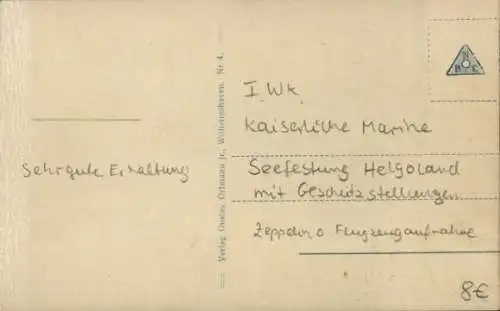 I. Wk.
Kaiserliche Marine
Sehr gute Erhaltung
Seefestung Helgoland
mit Geschützstellungen
Zeppelin o Flugzeugaufnahme
8€
Verlag Gustav Ortmann jr., Wilhelmshaven. Nr 4.
N
B C